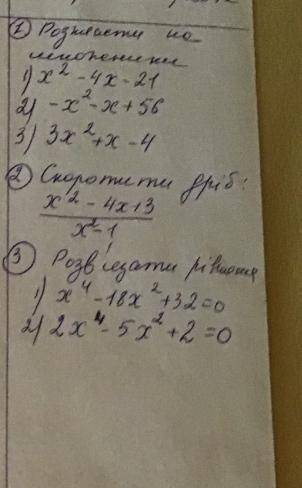 ① Розкласти на
множники
1) x² - 4x - 21
2) -x² - x + 56
3) 3x² + x - 4
② Скоротити дріб:
x² - 4x + 3
x² - 1
③ Розв'язати рівняння
1) x⁴ - 18x² + 32 = 0
2) 2x⁴ - 5x² + 2 = 0